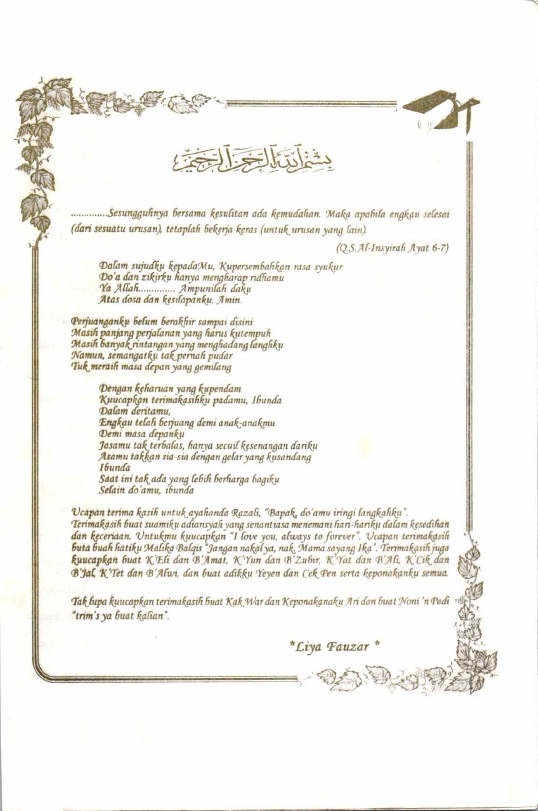 بسم الله الرحمن الرحيم
..............Sesungguhnya bersama kesulitan ada kemudahan. Maka apabila engkau selesai
(dari sesuatu urusan), tetaplah bekerja keras (untuk urusan yang lain).
(Q.S.Al-Insyirah Ayat 6-7)
Dalam sujudku kepadaMu, Kupersembahkan rasa syukur
Do'a dan zikirku hanya mengharap ridhamu
Ya Allah............., Ampunilah daku
Atas dosa dan kesilapanku, Amin.
Perjuanganku belum berakhir sampai disini
Masih panjang perjalanan yang harus kutempuh
Masih banyak rintangan yang menghadang langhku
Namun, semangatku tak pernah pudar
Tuk meraih masa depan yang gemilang
Dengan keharuan yang kupendam
Kuucapkan terimakasihku padamu, Ibunda
Dalam deritamu,
Engkau telah berjuang demi anak-anakmu
Demi masa depanku
Jasamu tak terbalas, hanya secuil kesenangan dariku
Asamu takkan sia-sia dengan gelar yang kusandang
Ibunda
Saat ini tak ada yang lebih berharga bagiku
Selain do'amu, ibunda
Ucapan terima kasih untuk ayahanda Razali, "Bapak, do'amu iringi langkahku".
Terimakasih buat suamiku adiansyah yang senantiasa menemani hari-hariku dalam kesedihan
dan keceriaan. Untukmu kuucapkan "I love you, always to forever". Ucapan terimakasih
buta buah hatiku Malika Balqis "Jangan nakal ya, nak, Mama sayang Ika". Terimakasih juga
kuucapkan buat K'Eli dan B'Amat, K'Yun dan B'Zubir, K'Yat dan B'Ali, K'Cik dan
B'Jal, K'Tet dan B'Afwi, dan buat adikku Yeyen dan Cek Pen serta keponakanku semua.
Tak lupa kuucapkan terimakasih buat Kak War dan Keponakanaku Ari dan buat Noni 'n Pedi
"trim's ya buat kalian".
*Liya Fauzar *